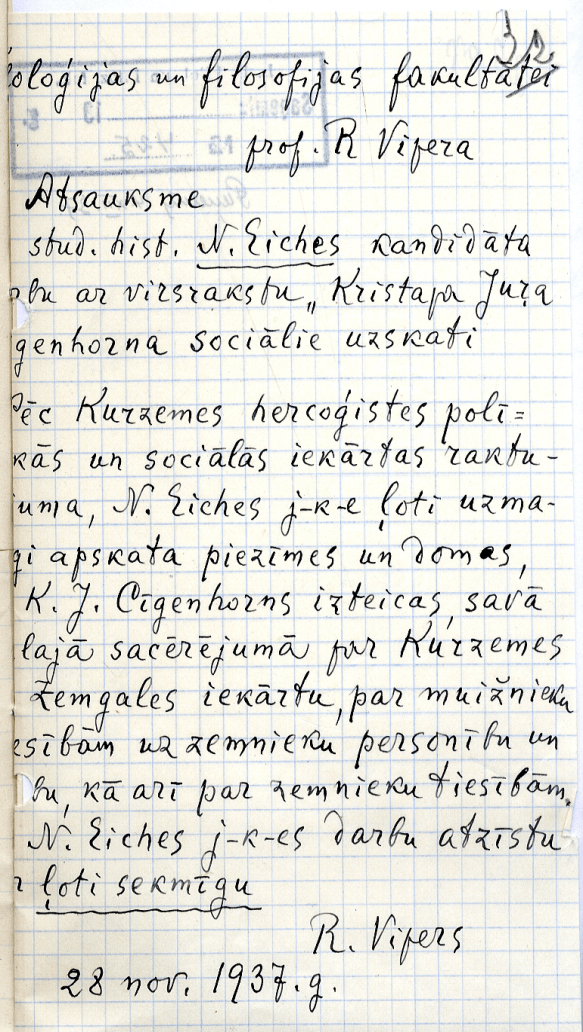 32
oloģijas un filosofijas fakultātei
prof. R Vipera
Atsauksme
stud. hist. N. Eiches kandidāta
rbu ar virsrakstu „Kristapa Juŗa
genhorna sociālie uzskati
Pēc Kurzemes hercoģistes polī=
kās un sociālās iekārtas raktu-
uma, N. Eiches j-k-e ļoti uzma-
gi apskata piezīmes un domas,
K. J. Cīgenhorns izteicas savā
lajā sacērējumā par Kurzemes
Žemgales iekārtu, par muižnieku
esībām uz zemnieku personību un
bu, kā arī par zemnieku tiesībām.
N. Eiches j-k-es darbu atzīstu
r ļoti sekmīgu
R. Vipers
28 nov. 1937. g.